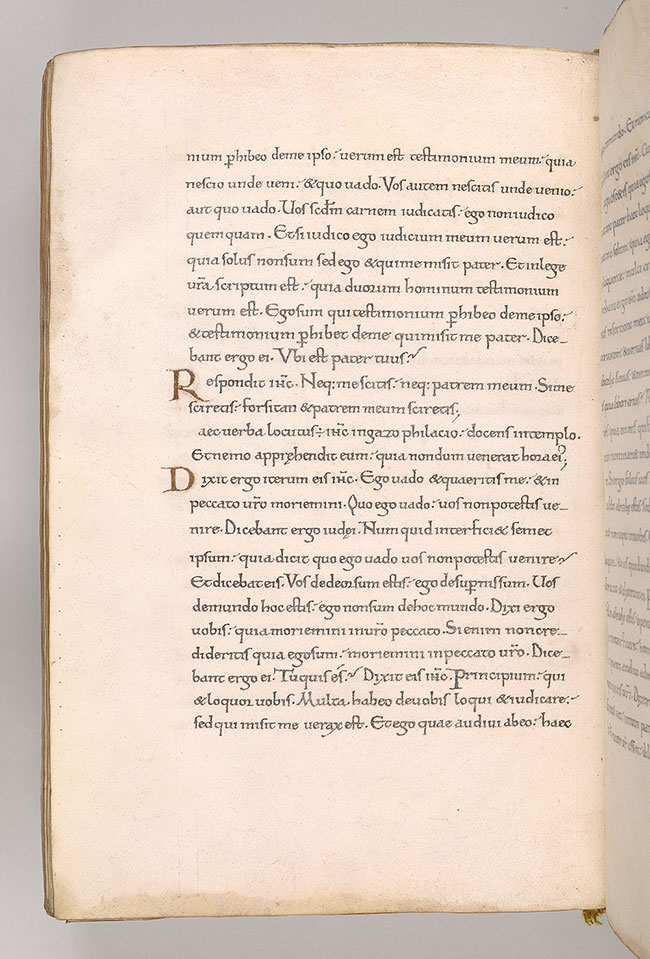 nium ꝑhibeo deme ipso: uerum est testimonium meum: quia
nescio unde ueni: &quo uado. Vos autem nescitis unde uenio:
aut quo uado. Uos scdm carnem iudicatis: ego noniudico
quemquam. Etsi iudico ego iudicium meum uerum est:
quia solus nonsum sed ego &quime misit pater. Et inlege
ur̄a scriptum est: quia duorum hominum testimonium
uerum est. Egosum qui testimonium ꝑhibeo deme ipso:
&testimonium ꝑhibet deme qui misit me pater. Dice-
bant ergo ei. Vbi est pater tuus?
Respondit ihc̄. Neq: me scitis: neq: patrem meum. Sime
sciretis: forsitan &patrem meum sciretis;
aec uerba locutus÷ ihc̄ ingazo philacio: docens intemplo.
Et nemo apprehendit eum: quia nondum uenerat hora ei;
Dixit ergo iterum eis ihc̄. Ego uado &quaeritis me: &in
peccato ur̄o moriemini. Quo ego uado: uos nonpotestis ue-
nire. Dicebant ergo iudęi. Num quid interfici& semet
ipsum: quia dicit quo ego uado uos nonpotestis uenire?
Et dicebat eis. Vos dedeorsum estis: ego desupernissum. Uos
demundo hoc estis: ego nonsum dehoc mundo. Dixi ergo
uobis: quia moriemini inur̄o peccato. Si enim noncre-
dideritis quia egosum: moriemini inpeccato ur̄o. Dice-
bant ergo ei. Tu quis es? Dixit eis ihc̄. Principium: qui
&loquor uobis. Multa habeo deuobis loqui &iudicare:
sed qui misit me uerax est. Et ego quae audiui abeo: haec